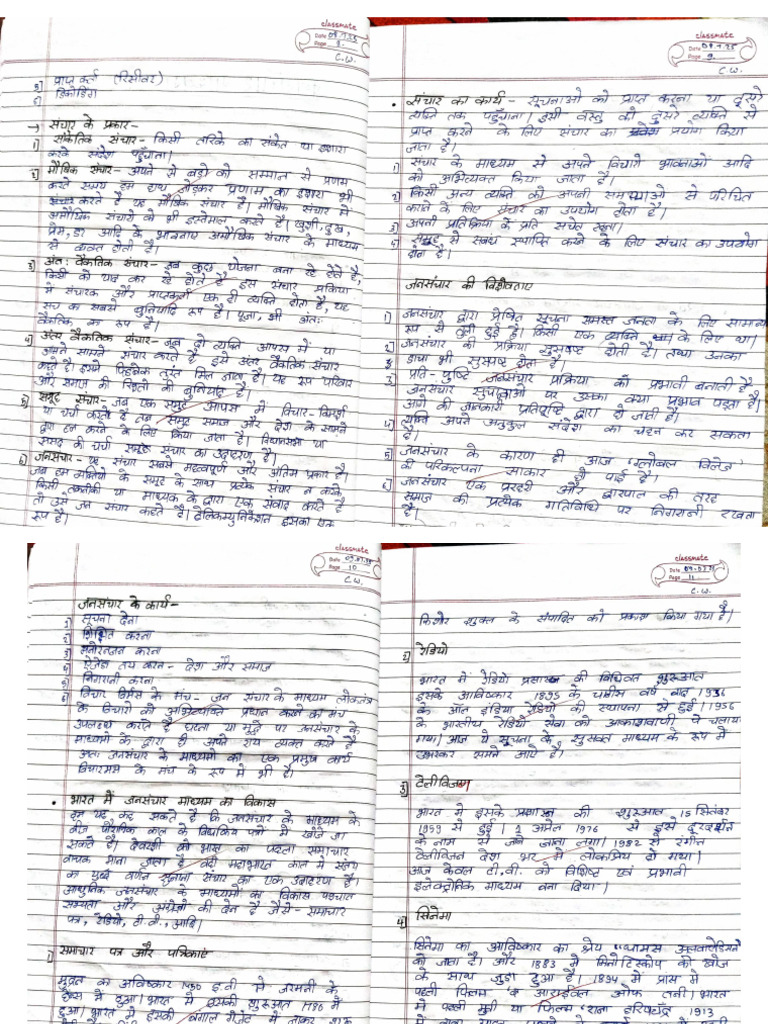 classmate
Date 08.9.25
Page 8.
C.W.
5) प्राप्तकर्ता (रिसीवर)
6) डिकोडिंग
→ संचार के प्रकार-
1) सांकेतिक संचार - किसी तरिके का संकेत या इशारा
करके संदेश पहुँचाना।
2) मौखिक संचार - अपने से बड़ो को सम्मान से प्रणाम
करते समय हम हाथ जोड़कर प्रणाम का इशारा भी
संचार करते है यह मौखिक संचार है। मौखिक संचार में
अमौखिक संचारो को भी इस्तेमाल करते है। खुशी, दुख,
प्रेम, डर आदि के भावनाए अमौखिक संचार के माध्यम
से व्यक्त होती है।
3) अंतः वैक्तिक संचार - हम कुछ योजना बना रहे होते है,
किसी को याद कर रहे होते है इस संचार प्रक्रिया
में संचारक और प्राप्तकर्ता एक ही व्यक्ति होता है, यह
संचार का सबसे बुनियादि रूप है। पूजा, भी अंतः
वैक्तिक का रूप है।
4) अंतर वैक्तिक संचार - जब दो व्यक्ति आपस में या
आमने सामने संचार करते है इसे अंतर वैक्तिक संचार
कहते है। इसमे फिडबैक तुरंत मिल जाता है। यह रूप परिवार
और समाज की रिश्तों की बुनियाद है।
5) समूह संचार - जब एक समूह आपस में विचार-विमर्श
या चर्चा करते है समूह समाज और देश के सामने
द्वारा हल करने के लिए किया जाता है। विधानसभा या
समूह की चर्चा समूह संचार का उदाहरण है।
6) जनसंचार - यह संचार सबसे महत्वपूर्ण और अंतिम प्रकार है।
जब हम व्यक्तियो के समूह के साथ प्रत्येक संचार न करके
किसी तकनीकी या माध्यक के द्वारा एक संवाद करते है
तो उसे जन संचार कहते है। टेलिकम्युनिकेशन इसका एक
रूप है।
classmate
Date 08.9.25
Page 9.
C.W.
• संचार का कार्य - सूचनाओ को प्राप्त करना या दूसरे
व्यक्ति तक पहुँचाना। इसी वस्तु को दुसरे व्यक्ति से
प्राप्त करने के लिए संचार का प्रयोग किया
जाता है।
1) संचार के माध्यम से अपने विचारो भावनाओं आदि
को अभिव्यक्त किया जाता है।
2) किसी अन्य व्यक्ति को अपनी समस्याओ से परिचित
कराने के लिए संचार का उपयोग होता है।
3) अपनी प्रतिक्रिया के प्रति सचेत रहना।
4) समूह से सबंध स्थापित करने के लिए संचार का उपयोग
होता है।
जनसंचार की विशेषताए
1) जनसंचार द्वारा प्रेषित सूचना समस्त जनता के लिए सामान्य
रूप से जुड़ी हुई है। किसी एक व्यक्ति के लिए था।
2) जनसंचार की प्रक्रिया सुस्पष्ट होती है। तथा उनका
ढाचा भी सुस्पष्ट होता है।
3) प्रति-पुष्टि जनसंचार प्रक्रिया को प्रभावी बनाती है
जनसंचार सूचनाओ पर उसका क्या प्रभाव पड़ता है।
आगे की जानकारी प्रतिपुष्टि द्वारा हो जाती है।
4) व्यक्ति अपने अनुकुल संदेश का चयन कर सकता
है।
5) जनसंचार के कारण ही आज 'ग्लोबल विलेज'
की परिकल्पना साकार हो पाई है।
6) जनसंचार एक प्रहरी और द्वारपाल की तरह
समाज की प्रत्येक गतिविधि पर निगरानी रखता
है।
classmate
Date 09.09.25
Page 10
C.W.
जनसंचार के कार्य-
1) सूचना देना
2) शिक्षित करना
3) मनोरंजन करना
4) ऐजेंडा तय करना - देश और समाज
5) निगरानी करना
6) विचार विमर्श के मंच - जन संचार के माध्यम लोकतंत्र
के विचारो को अभिव्यक्ति प्रधान करने का मंच
उपलब्ध कराते है घटना या मुद्दे पर जनसंचार के
माध्यमो के द्वारा ही अपने राय व्यक्त करते है
अतः जनसंचार के माध्यमो का एक प्रमुख कार्य
विचारमम के मंच के रूप मे भी है।
• भारत में जनसंचार माध्यम का विकास
हम यह कह सकते है कि जनसंचार के माध्यम के
बीज पौराणिक काल के मे खोजे जा
सकते है। देवर्षी को भारत का पहला समाचार
वाचक माना जाता है वही महाभारत काल में संजय
का युद्ध वर्णन सुनाना संचार का एक उदाहरण है।
आधुनिक जनसंचार के माध्यमों का विकास पश्चात
सभ्यता और अंग्रेजो की देन है जैसे - समाचार
पत्र, रेडियो, टी.वी., आदि।
1) समाचार पत्र और पत्रिकाएं
मुद्रण का आविष्कार 1450 इ.वी में जरमनी के
में हुआ। भारत में इसकी शुरुआत 1786 में
हुआ। भारत में इसकी बंगाल गैजेट में लाकर शुरू
classmate
Date 09.09.25
Page 11
C.W.
किशोर शुक्ल के संपादित को प्रकाश किया गया है।
2) रेडियो
भारत में रेडियो प्रसारण की विधिवत शुरुआत
इसके आविष्कार 1895 के चालीस वर्ष बाद 1936
के ऑल इंडिया रेडियो की स्थापना से हुई। 1956
के भारतीय रेडियो सेवा को आकाशवाणी ने चलाया
गया। आज ये सूचना के सुसक्त माध्यम के रूप में
उभरकर सामने आऐ है।
3) टेलीविजन
भारत में इसके प्रसारण की शुरुआत 15 सितंबर
1959 से हुई। 1 अप्रेल 1976 से इसे दूरदर्शन
के नाम से जाने जाना लगा। 1982 से रंगीन
टेलीविजन देश भर में लोकप्रिय हो गया।
आज केवल टी.वी. को विशिष्ट एवं प्रभावी
इलेक्ट्रोनिक माध्यम बना दिया।
4) सिनेमा
सिनेमा का आविष्कार का श्रेय "थामस अल्वा एडिसन
को जाता है। और 1883 में मिनेटिस्कोप की खोज
के साथ जुड़ा हुआ है। 1894 में फ्रास मे
पहली फिल्म 'द आराईवल ऑफ ट्रेन'। भारत
में पहली मूवी या फिल्म 'राजा हरिश्चंद्र' 1913